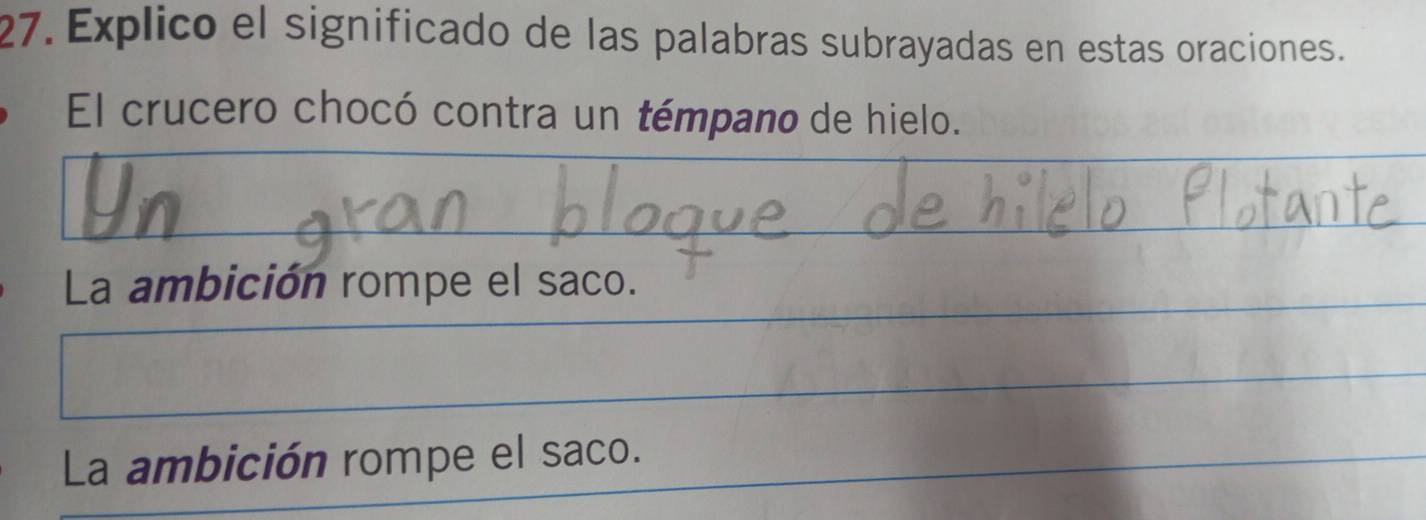 27. Explico el significado de las palabras subrayadas en estas oraciones.
El crucero chocó contra un témpano de hielo.
Un gran bloque de hilelo flotante
La ambición rompe el saco.
La ambición rompe el saco.